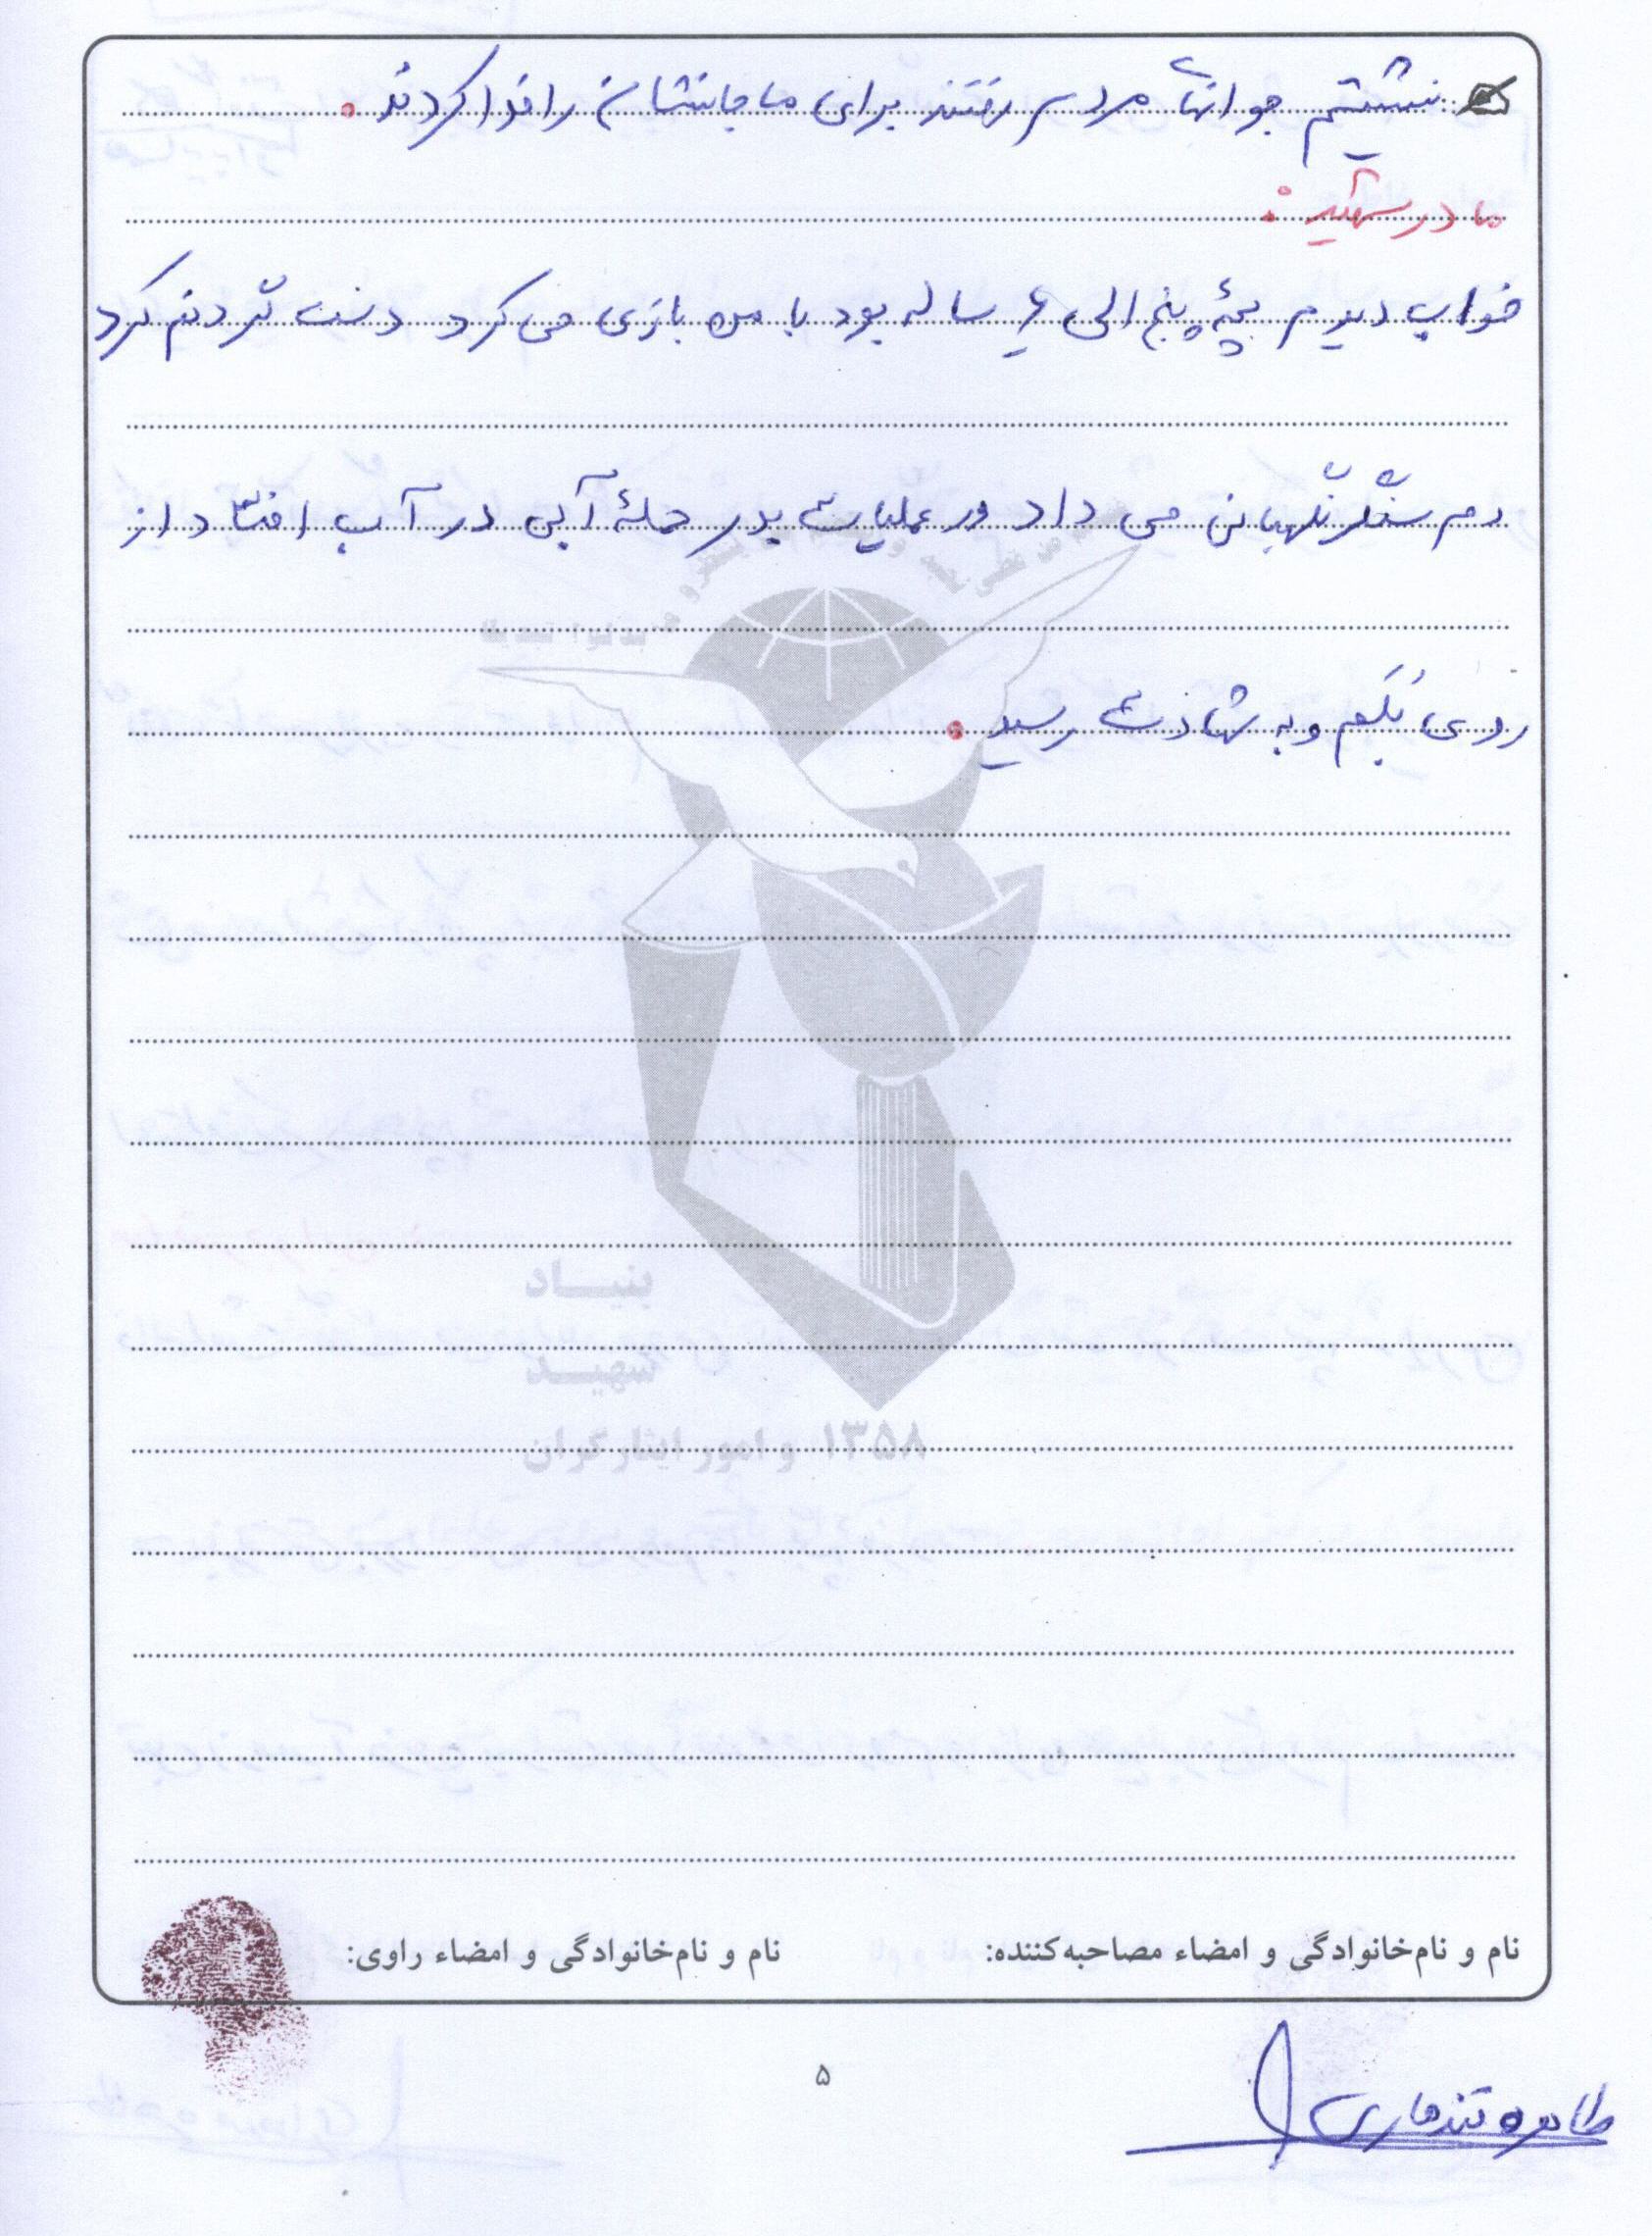 نشستیم جوانهاء مردم رفتند برای ما جانشان را فدا کردند.
مادر شهید:
خواب دیدم بچهٔ پنج الی ۶ ساله بود با من بازی می کرد دست گردنم کرد
دم سنگر نگهبانی می داد در عملیات بدر حملهٔ آبی در آب افتاد از
روی پُلم و به شهادت رسید.
بنیاد
شهید
۱۳۵۸ و امور ایثارگران
نام و نام‌خانوادگی و امضاء مصاحبه‌کننده:
نام و نام‌خانوادگی و امضاء راوی:
۵
طاهره قندهاری